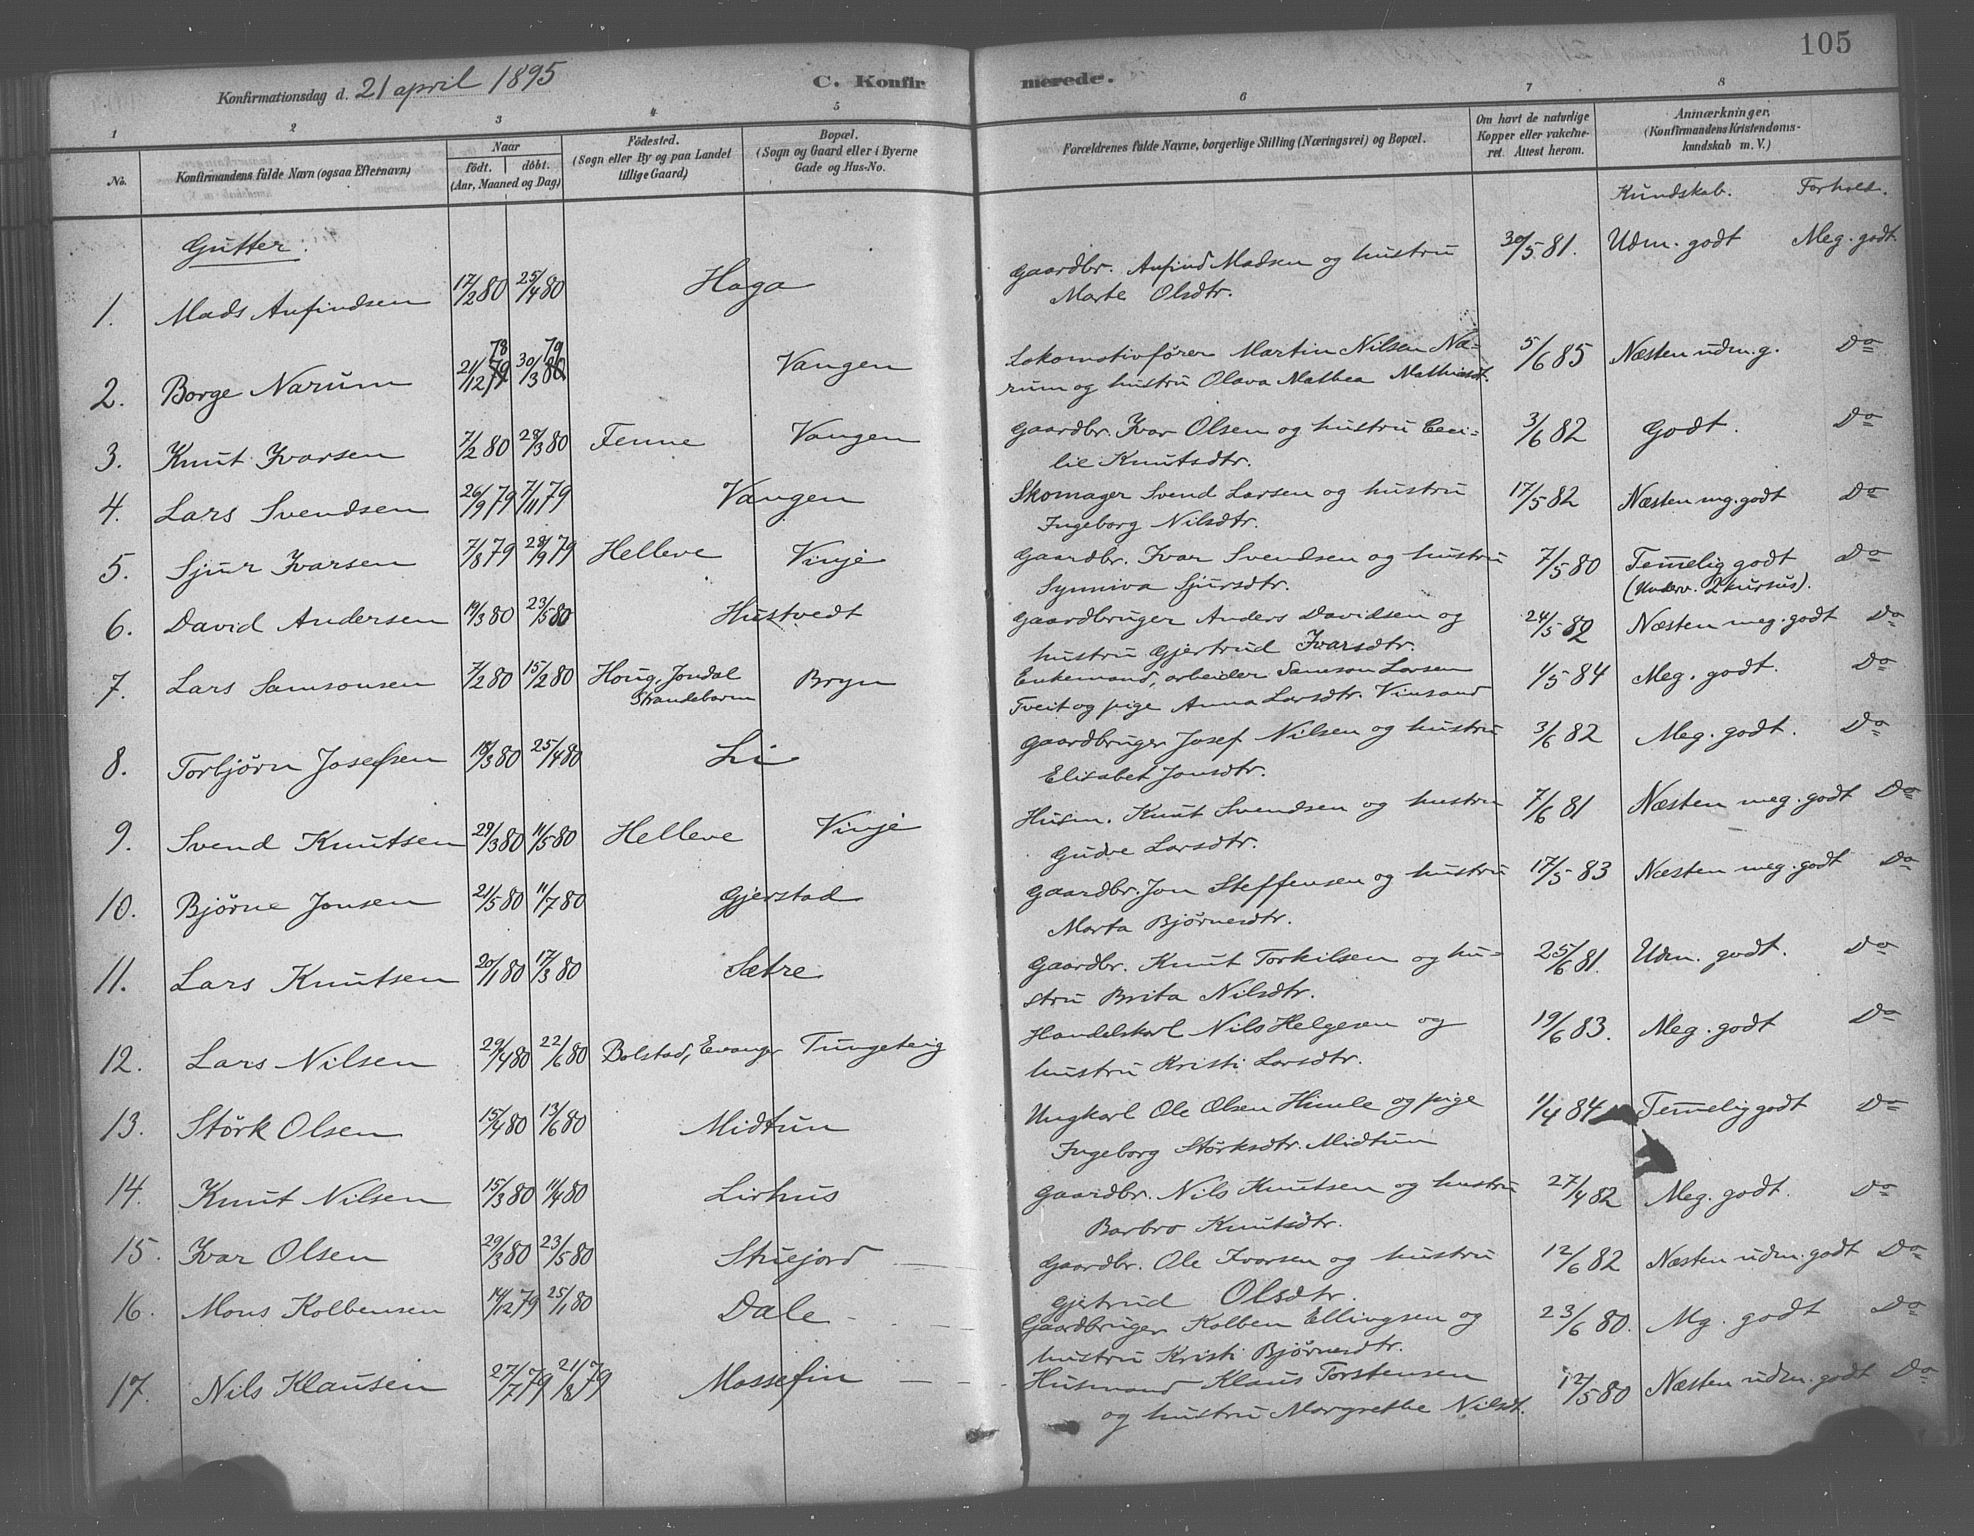 105
Konfirmationsdag d. 21 april 1895 C. Konfirmerede.
1 2 3 4 5 6 7 8
No. Konfirmandens fulde Navn (ogsaa Efternavn) Naar födt. döbt. (Aar, Maaned og Dag) Födested. (Sogn eller By og paa Landet tillige Gaard) Bopæl. (Sogn og Gaard eller i Byerne Gade og Hus-No. Forældrenes fulde Navne, borgerlige Stilling (Næringsvei) og Bopæl. Om havt de naturlige Kopper eller vakcineret. Attest herom. Anmærkninger, (Konfirmandens Kristendomskundskab m. V.)
Kundskab. Forhold.
Gutter.
1. Mads Anfindsen 17/2 80 25/4 80 Haga Gaardbr. Anfind Madsen og hustru 30/5 81. Udm. godt Meg. godt
Marte Olsdtr.
2. Borge Narum 21/12 79 78 30/3 80 79 Vangen Lokomotivfører Martin Nilsen Næ- 5/6 85 Næsten udm. g. Do
rum og hustru Olava Mathea Mathiasdt.
3. Knut Ivarsen 7/2 80 28/3 80 Fenne Vangen Gaardbr. Ivar Olsen og hustru Ceci- 3/6 82 Godt. Do
lie Knutsdtr.
4. Lars Svendsen 26/9 79 7/11 79 Vangen Skomager Svend Larsen og hustru 17/5 82 Næsten mg. godt Do
Ingeborg Nilsdtr.
5. Sjur Ivarsen 7/8 79 28/9 79 Helleve Vinje Gaardbr. Ivar Svendsen og hustru 7/5 80 Temelig godt Do
Synniva Sjursdtr. (Underv. 2 kursus).
6. David Andersen 19/3 80 23/5 80 Hustvedt Gaardbruger Anders Davidsen og 24/5 82 Næsten meg. godt Do
hustru Gjertrud Ivarsdtr.
7. Lars Samsonsen 7/2 80 15/2 80 Houg, Jondal Bryn Enkemand, arbeider Samson Larsen 1/5 84 Meg. godt. Do
Strandebarm Tveit og pige Anna Larsdtr. Vinsand
8. Torbjørn Josefsen 18/3 80 25/4 80 Li Gaardbruger Josef Nilsen og hustru 3/6 82 Meg. godt. Do
Elisabet Jonsdtr.
9. Svend Knutsen 29/3 80 11/5 80 Helleve Vinje Husm. Knut Svendsen og hustru 7/6 81 Næsten meg. godt Do
Gudve Larsdtr.
10. Bjørne Jonsen 21/5 80 11/7 80 Gjerstad Gaardbr. Jon Steffensen og hustru 17/5 83 Næsten meg. godt Do
Marta Bjørnesdtr.
11. Lars Knutsen 20/1 80 17/3 80 Sætre Gaardbr. Knut Torkilsen og hu- 25/6 81. Udm. godt. Do
stru Brita Nilsdtr.
12. Lars Nilsen 29/4 80 22/6 80 Bolstad, Evanger Tungeteig Handelskarl Nils Helgesen og 19/6 83. Meg. godt Do
hustru Kristi Larsdtr.
13. Störk Olsen 15/4 80 13/6 80 Midtun Ungkarl Ole Olsen Himle og pige 1/4 84 Temelig godt Do
Ingeborg Störksdtr. Midtun
14. Knut Nilsen 15/3 80 11/4 80 Lirhus Gaardbr. Nils Knutsen og hustru 27/4 82 Meg. godt. Do
Barbro Knutsdtr.
15. Ivar Olsen 29/3 80 23/5 80 Stuejord Gaardbr. Ole Ivarsen og hustru 12/6 82 Næsten udm. godt Do
Gjertrud Olsdtr.
16. Mons Kolbensen 14/12 79 25/1 80 Dale Gaardbruger Kolben Ellingsen og 23/6 80. Mg. godt Do
hustru Kristi Bjørnesdtr.
17. Nils Klausen 27/7 79 21/8 79 Mossefin Husmand Klaus Torstensen 12/5 80 Næsten udm. godt Do
og hustru Margrethe Nilsdt.